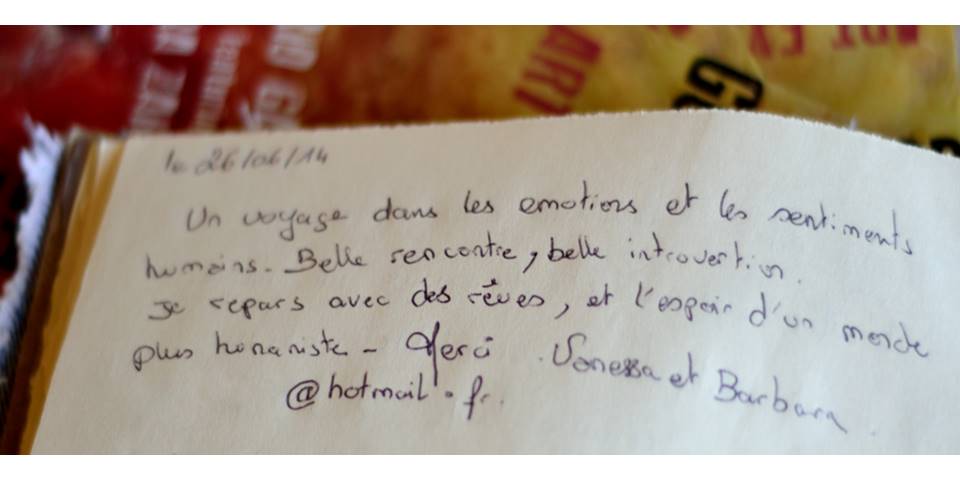 ART
G
le 26/06/14
Un voyage dans les emotions et les sentiments
humains. Belle rencontre, belle introvertion.
Je repars avec des rêves, et l'espoir d'un monde
plus humaniste - Merci. Vanessa et Barbara.
@hotmail.fr.